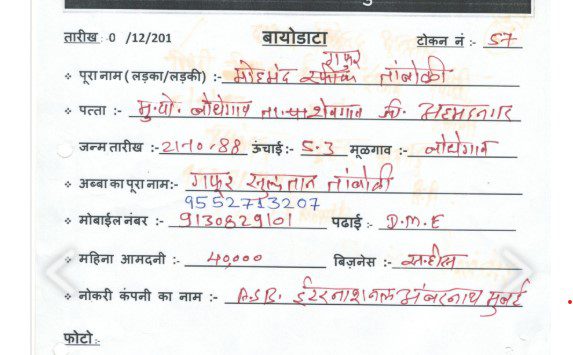 तारीख : 0 /12/201 बायोडाटा टोकन नं :- 57
गफुर
पूरा नाम ( लड़का/लड़की) :- मोहमंद रफीक तांबोळी
पत्ता :- मु.पो. बोधेगाव ता. शेवगाव जि. अहमदनगर
जन्म तारीख :- 21-10-88 ऊंचाई:- 5.3 मूळगाव :- बोधेगाव
अब्बा का पूरा नाम:- गफुर सुलतान तांबोळी
9552713207
मोबाईल नंबर :- 9130829101 पढाई :- D.M.E
महिना आमदनी :- 40,000 बिज़नेस :-
नोकरी कंपनी का नाम :- इंटरनाशनल अंबरनाथ मुंबई
फोटो :-